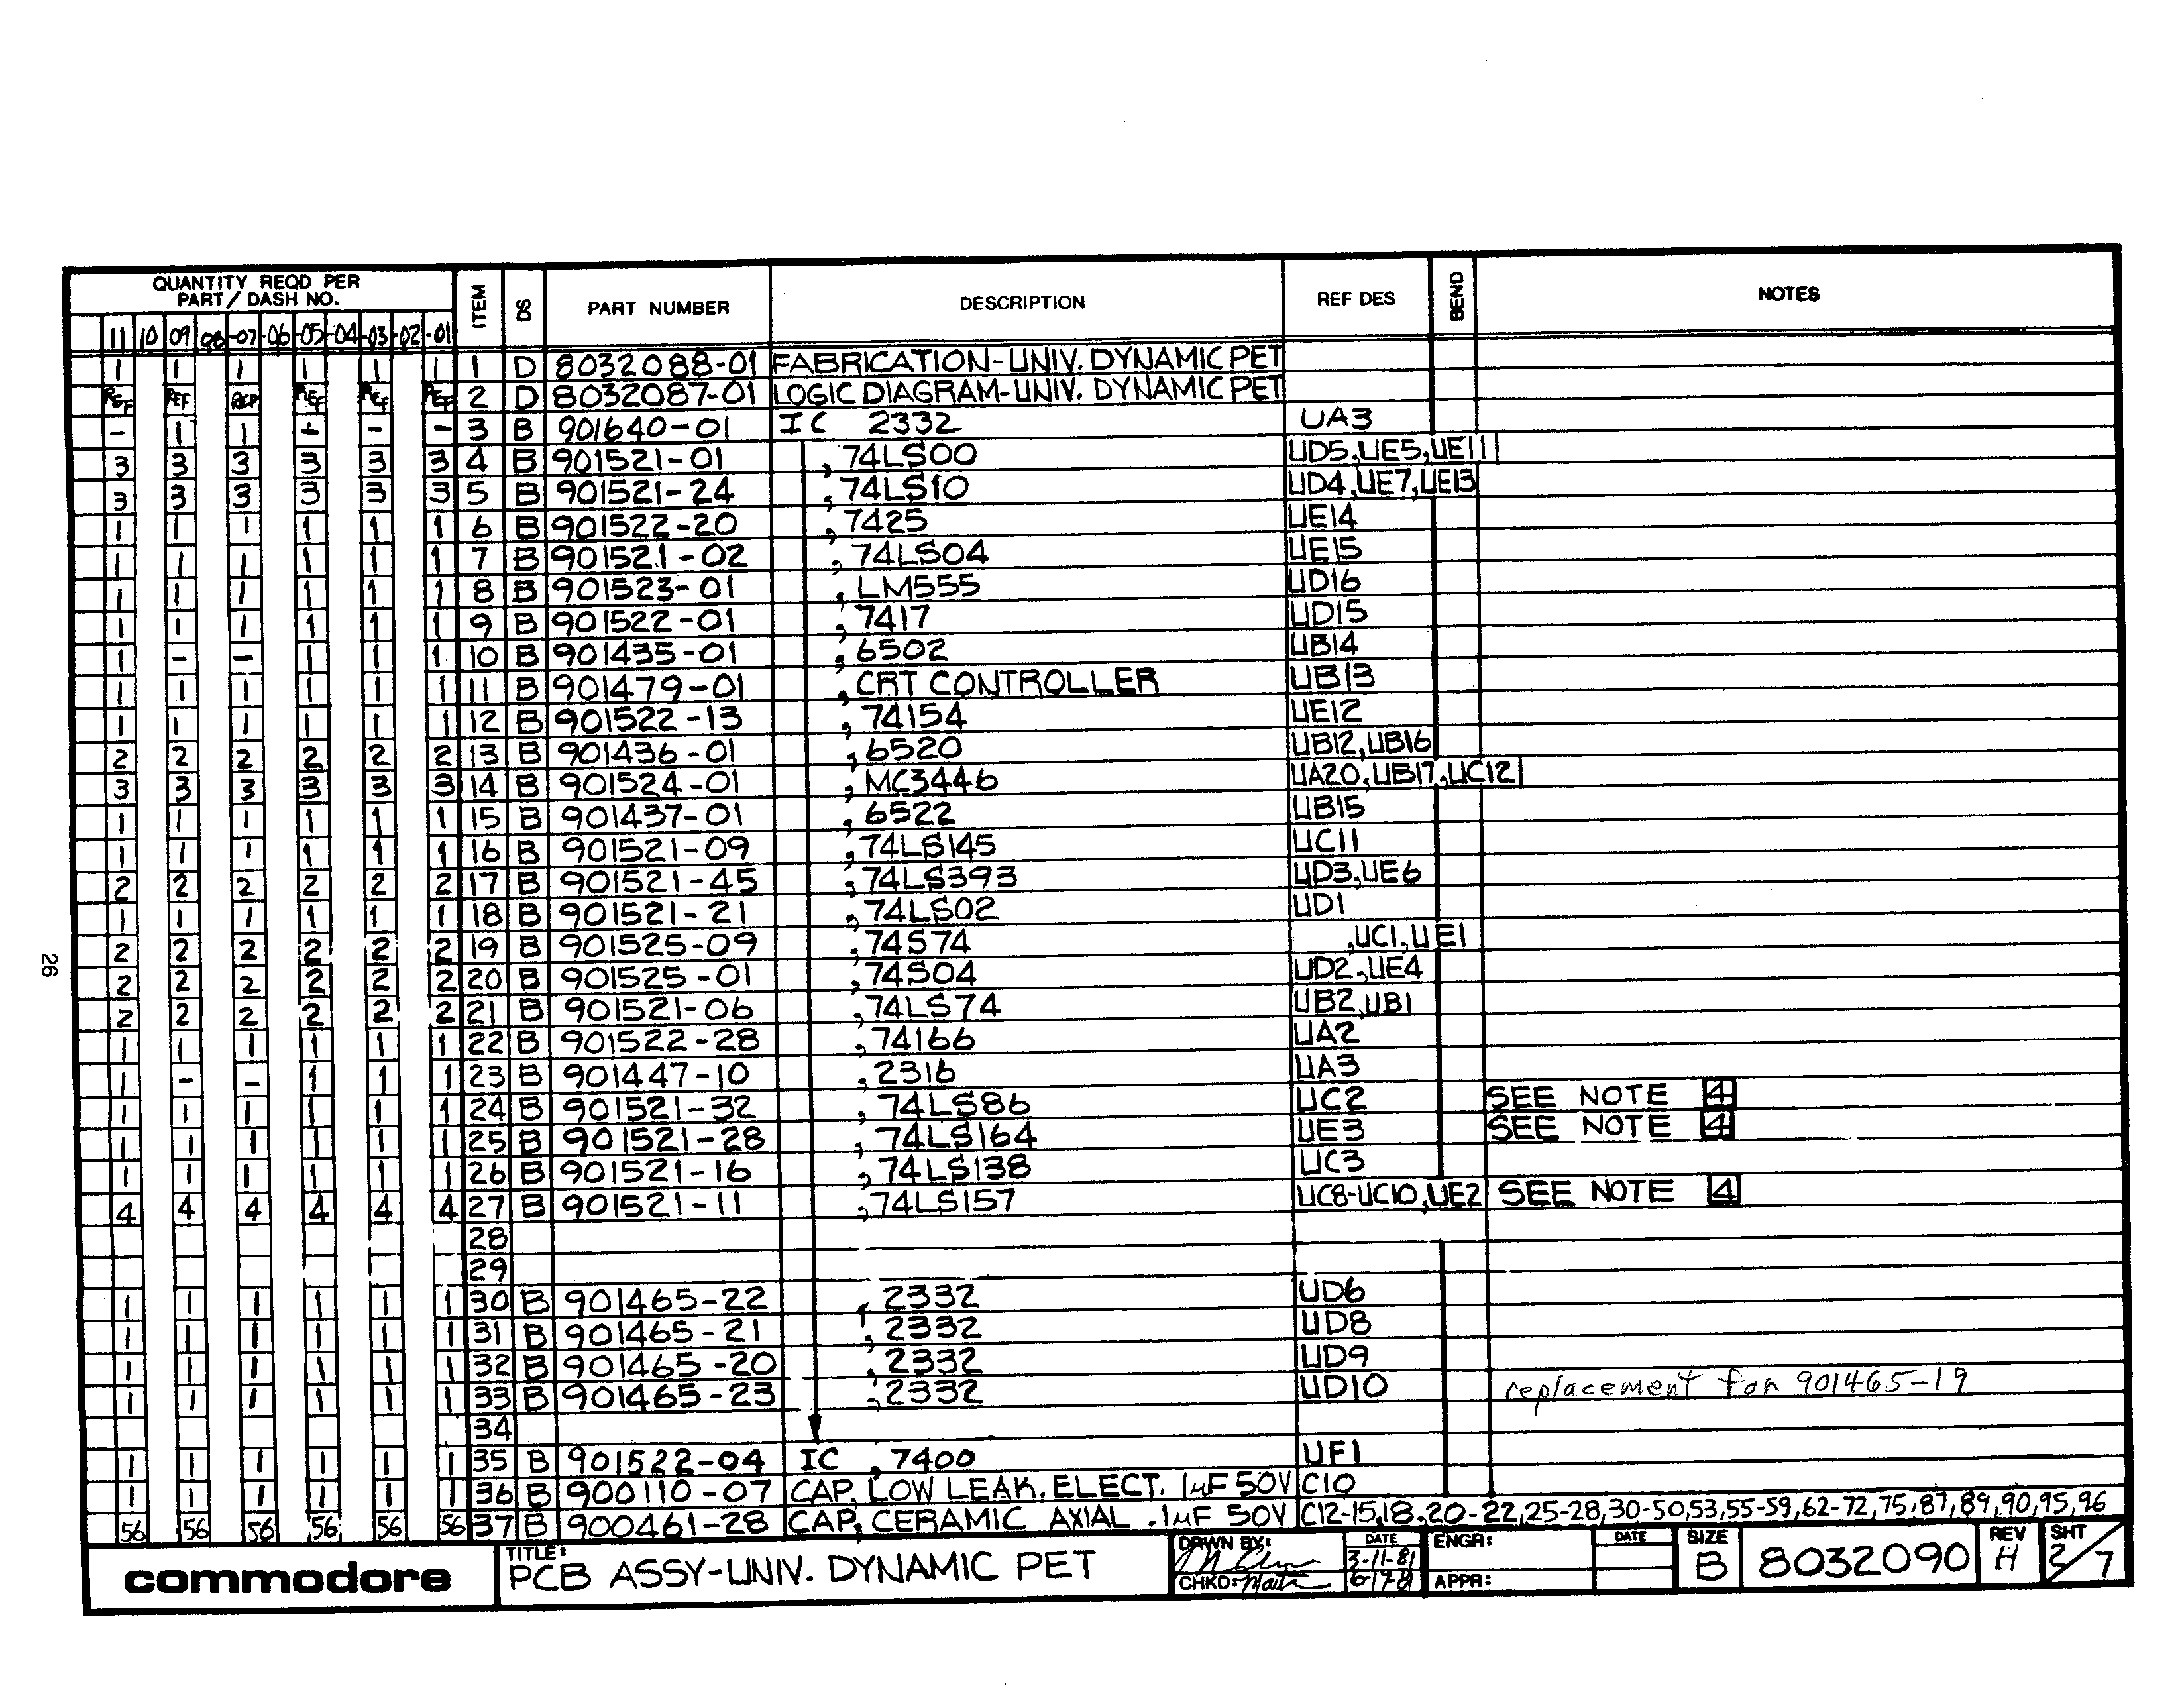 QUANTITY REQD PER PART/DASH NO. ITEM DS PART NUMBER DESCRIPTION REF DES BEND NOTES
11 10 09 08 -07 -06 -05 -04 -03 -02 -01
1 1 1 1 1 1 1 D 8032088-01 FABRICATION-UNIV. DYNAMIC PET
REF REF REF REF REF REF 2 D 8032087-01 LOGIC DIAGRAM-UNIV. DYNAMIC PET
- 1 1 - - - 3 B 901640-01 IC 2332 UA3
3 3 3 3 3 3 4 B 901521-01 , 74LS00 UD5,UE5,UE11
3 3 3 3 3 3 5 B 901521-24 , 74LS10 UD4,UE7,UE13
1 1 1 1 1 1 6 B 901522-20 , 7425 UE14
1 1 1 1 1 1 7 B 901521-02 , 74LS04 UE15
1 1 1 1 1 1 8 B 901523-01 , LM555 UD16
1 1 1 1 1 1 9 B 901522-01 , 7417 UD15
1 - - 1 1 1 10 B 901435-01 , 6502 UB14
1 1 1 1 1 1 11 B 901479-01 , CRT CONTROLLER UB13
1 1 1 1 1 1 12 B 901522-13 , 74154 UE12
2 2 2 2 2 2 13 B 901436-01 , 6520 UB12,UB16
3 3 3 3 3 3 14 B 901524-01 , MC3446 UA20,UB17,UC12
1 1 1 1 1 1 15 B 901437-01 , 6522 UB15
1 1 1 1 1 1 16 B 901521-09 , 74LS145 UC11
2 2 2 2 2 2 17 B 901521-45 , 74LS393 UD3,UE6
1 1 1 1 1 1 18 B 901521-21 , 74LS02 UD1
2 2 2 2 2 2 19 B 901525-09 , 74S74 ,UC1,UE1
2 2 2 2 2 2 20 B 901525-01 , 74S04 UD2,UE4
2 2 2 2 2 2 21 B 901521-06 , 74LS74 UB2,UB1
1 1 1 1 1 1 22 B 901522-28 , 74166 UA2
1 - - 1 1 1 23 B 901447-10 , 2316 UA3
1 1 1 1 1 1 24 B 901521-32 , 74LS86 UC2 SEE NOTE 4
1 1 1 1 1 1 25 B 901521-28 , 74LS164 UE3 SEE NOTE 4
1 1 1 1 1 1 26 B 901521-16 , 74LS138 UC3
4 4 4 4 4 4 27 B 901521-11 , 74LS157 UC8-UC10,UE2 SEE NOTE 4
28
29
1 1 1 1 1 1 30 B 901465-22 , 2332 UD6
1 1 1 1 1 1 31 B 901465-21 , 2332 UD8
1 1 1 1 1 1 32 B 901465-20 , 2332 UD9
1 1 1 1 1 1 33 B 901465-23 , 2332 UD10 replacement for 901465-19
34
1 1 1 1 1 1 35 B 901522-04 IC , 7400 UF1
1 1 1 1 1 1 36 B 900110-07 CAP, LOW LEAK. ELECT. 1µF 50V C10
56 56 56 56 56 56 37 B 900461-28 CAP, CERAMIC AXIAL .1µF 50V C12-15,18,20-22,25-28,30-50,53,55-59,62-72,75,87,89,90,95,96
commodore TITLE: PCB ASSY-UNIV. DYNAMIC PET DRWN BY: DATE 3-11-81 ENGR: DATE SIZE B 8032090 REV H SHT 2/7
CHKD: 6-17-81 APPR:
26